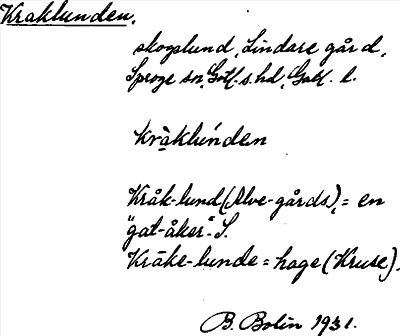 Kraklunden.
skogslund, Lindare gård,
Sproge sn, Gotl. s. hd, Gotl. l.
kràklúnden
Kråk-lund (Alve-gårds), = en
"gat-åker". S.
Kråke-lunde = hage (Kruse).
B. Bolin 1931.